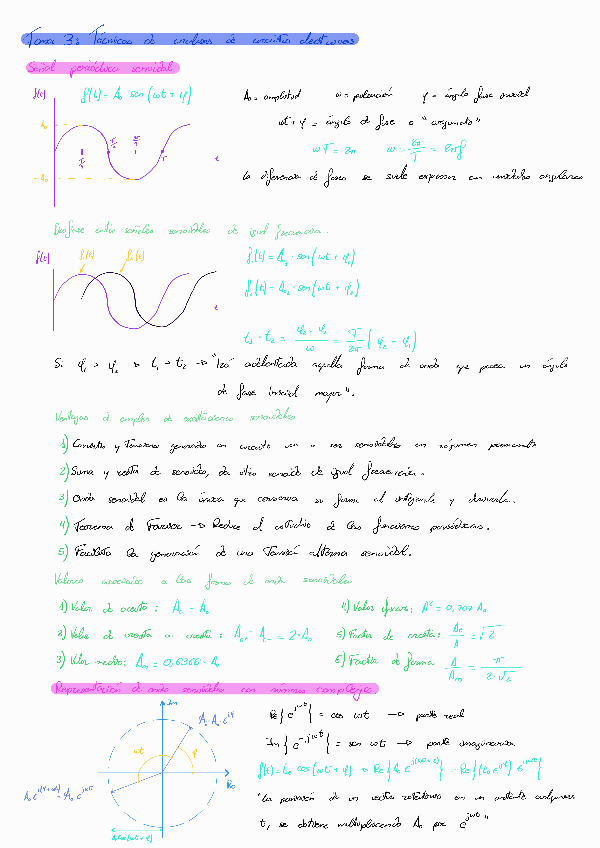 Tema 3: Técnicas de análisis de circuitos electrónicos
Señal periódica senoidal
f(t)
f(t) = A₀ sen(ωt + φ)
A₀ = amplitud ω = pulsación φ = ángulo fase inicial
ωt + φ = ángulo de fase o "argumento"
ωT = 2π ω = 2π/T = 2πf
La diferencia de fases se suele expresar en unidades angulares
A₀
-A₀
T
t
Desfase entre señales senoidales de igual frecuencia.
f(t)
f₁(t)
f₂(t)
t
f₁(t) = A₀₁ · sen(ωt + φ₁)
f₂(t) = A₀₂ · sen(ωt + φ₂)
t₁ - t₂ = (φ₂ - φ₁)/ω = T/2π (φ₂ - φ₁)
Si φ₁ > φ₂ → t₁ < t₂ → "Irá adelantada aquella forma de onda que posea un ángulo
de fase inicial mayor".
Ventajas de empleo de excitaciones senoidales
1) Corrientes y Tensiones generadas en circuito van a ser senoidales en régimen permanente
2) Suma y resta de senoides, da otro senoide de igual frecuencia.
3) Onda senoidal es la única que conserva su forma al integrarla y derivarla.
4) Teorema de Fourier → Reduce el estudio de las funciones periódicas.
5) Facilita la generación de una Tensión alterna senoidal.
Valores asociados a las formas de onda senoidales
1) Valor de cresta: A₀
4) Valor eficaz: A = 0,707 A₀
2) Valor de cresta a cresta: = 2·A₀
5) Factor de cresta: A₀/A = √2
3) Valor medio: Aₘ = 0,6366 · A₀
6) Factor de forma A/Aₘ = π/(2·√2)
Representación de onda senoidales con números complejos
Im
Re
ωt
φ
A = A₀ e^(jφ)
A₀ e^(j(φ+ωt)) = A₀ e^(jωt)
A₀ cos(ωt + φ)
Re{e^(jωt)} = cos ωt → parte real
Im{e^(jωt)} = sen ωt → parte imaginaria
f(t) = A₀ cos(ωt + φ) = Re{A₀ e^(j(ωt+φ))} = Re{(A₀ e^(jφ)) e^(jωt)}
"La posición de un vector rotatorio en un instante cualquiera
t, se obtiene multiplicando A₀ por e^(jωt)"